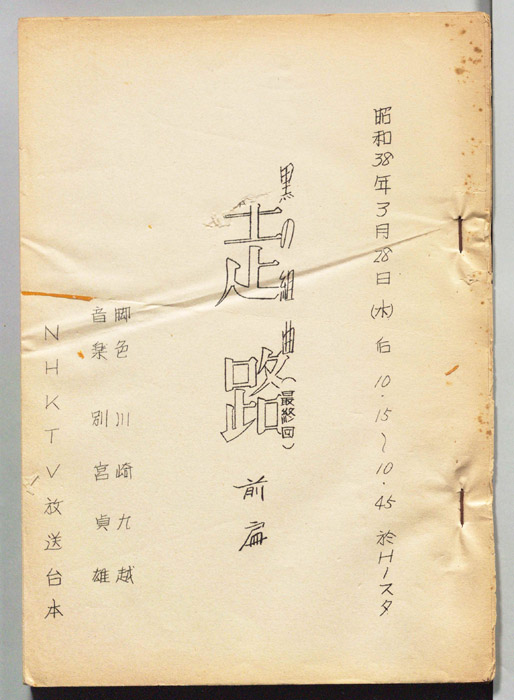 昭和38年3月28日(木)后10.15~10.45 於H-スタ
黒の組曲(最終回)
走路
前扁
脚色 川崎九越
音楽 別宮貞雄
NHKTV放送台本